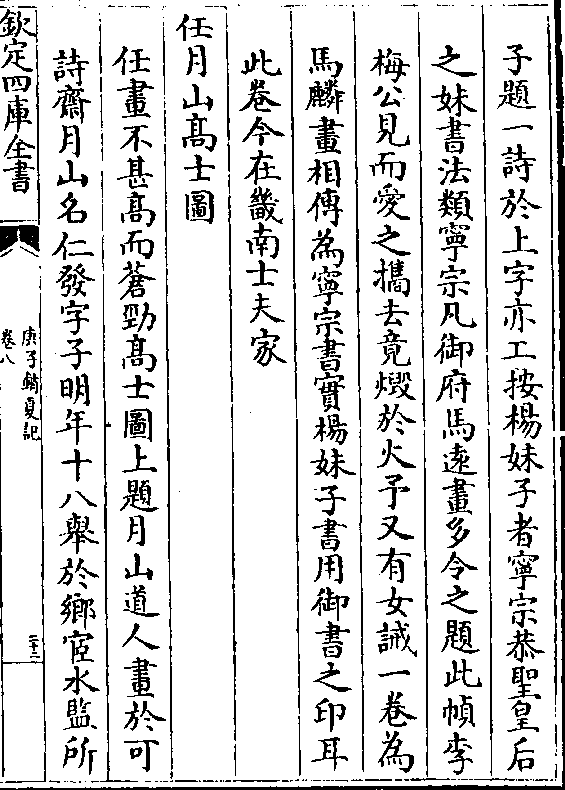 子題一詩於上字亦工按楊妹子者寧宗恭聖皇后
之妹書法類寧宗凡御府馬逺畫多令之題此幀李
梅公見而愛之攜去竟燬於火予又有女誡一卷為
馬麟畫相傳為寧宗書實楊妹子書用御書之印耳
此卷今在畿南士夫家
任月山髙士圖
任畫不甚髙而蒼勁髙士圖上題月山道人畫於可
詩齋月山名仁發字子明年十八舉於鄉宦水監所
欽定四庫全書
庚子銷夏記
卷八
二十二